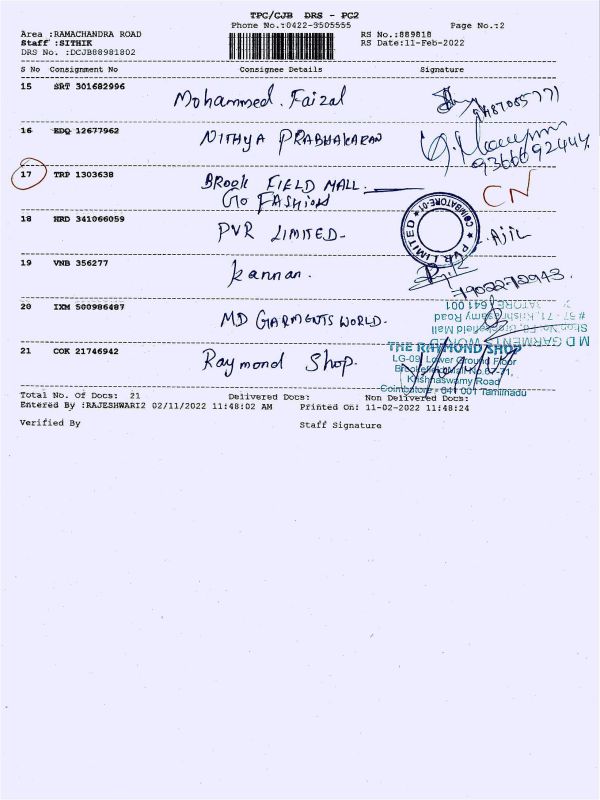 TPC/CJB DRS - PC2
Phone No.:0422-3505555 Page No.:2
Area :RAMACHANDRA ROAD RS No.:889818
Staff :SITHIK RS Date:11-Feb-2022
DRS No. :DCJB88981802
S No Consignment No Consignee Details Signature
15 SRT 301682996 Mohammed. Faizal
16 EDQ 12677962 NITHYA PRABHAKARAN
9366692444
17 TRP 1303638 BROOK FIELD MALL. CN
GO FASHION
18 HRD 341066059 PVR LIMITED- Ajil
PVR LIMITED ★ COIMBATORE-01 ★
19 VNB 356277 kannan.
7902270943.
20 IXM 500986487 MD GARMENTS WORLD.
M D GARMENTS WORLD
Shop No. F8, Brookefield Mall
# 67 - 71, Krishnasamy Road
641 001
21 COK 21746942 Raymond Shop.
THE RAYMOND SHOP
LG-09, Lower Ground Floor
Brookefield Mall No.67-71,
Krishnaswamy Road
Coimbatore - 641 001 Tamilnadu
Total No. Of Docs: 21 Delivered Docs: Non Delivered Docs:
Entered By :RAJESHWARI2 02/11/2022 11:48:02 AM Printed On: 11-02-2022 11:48:24
Verified By Staff Signature